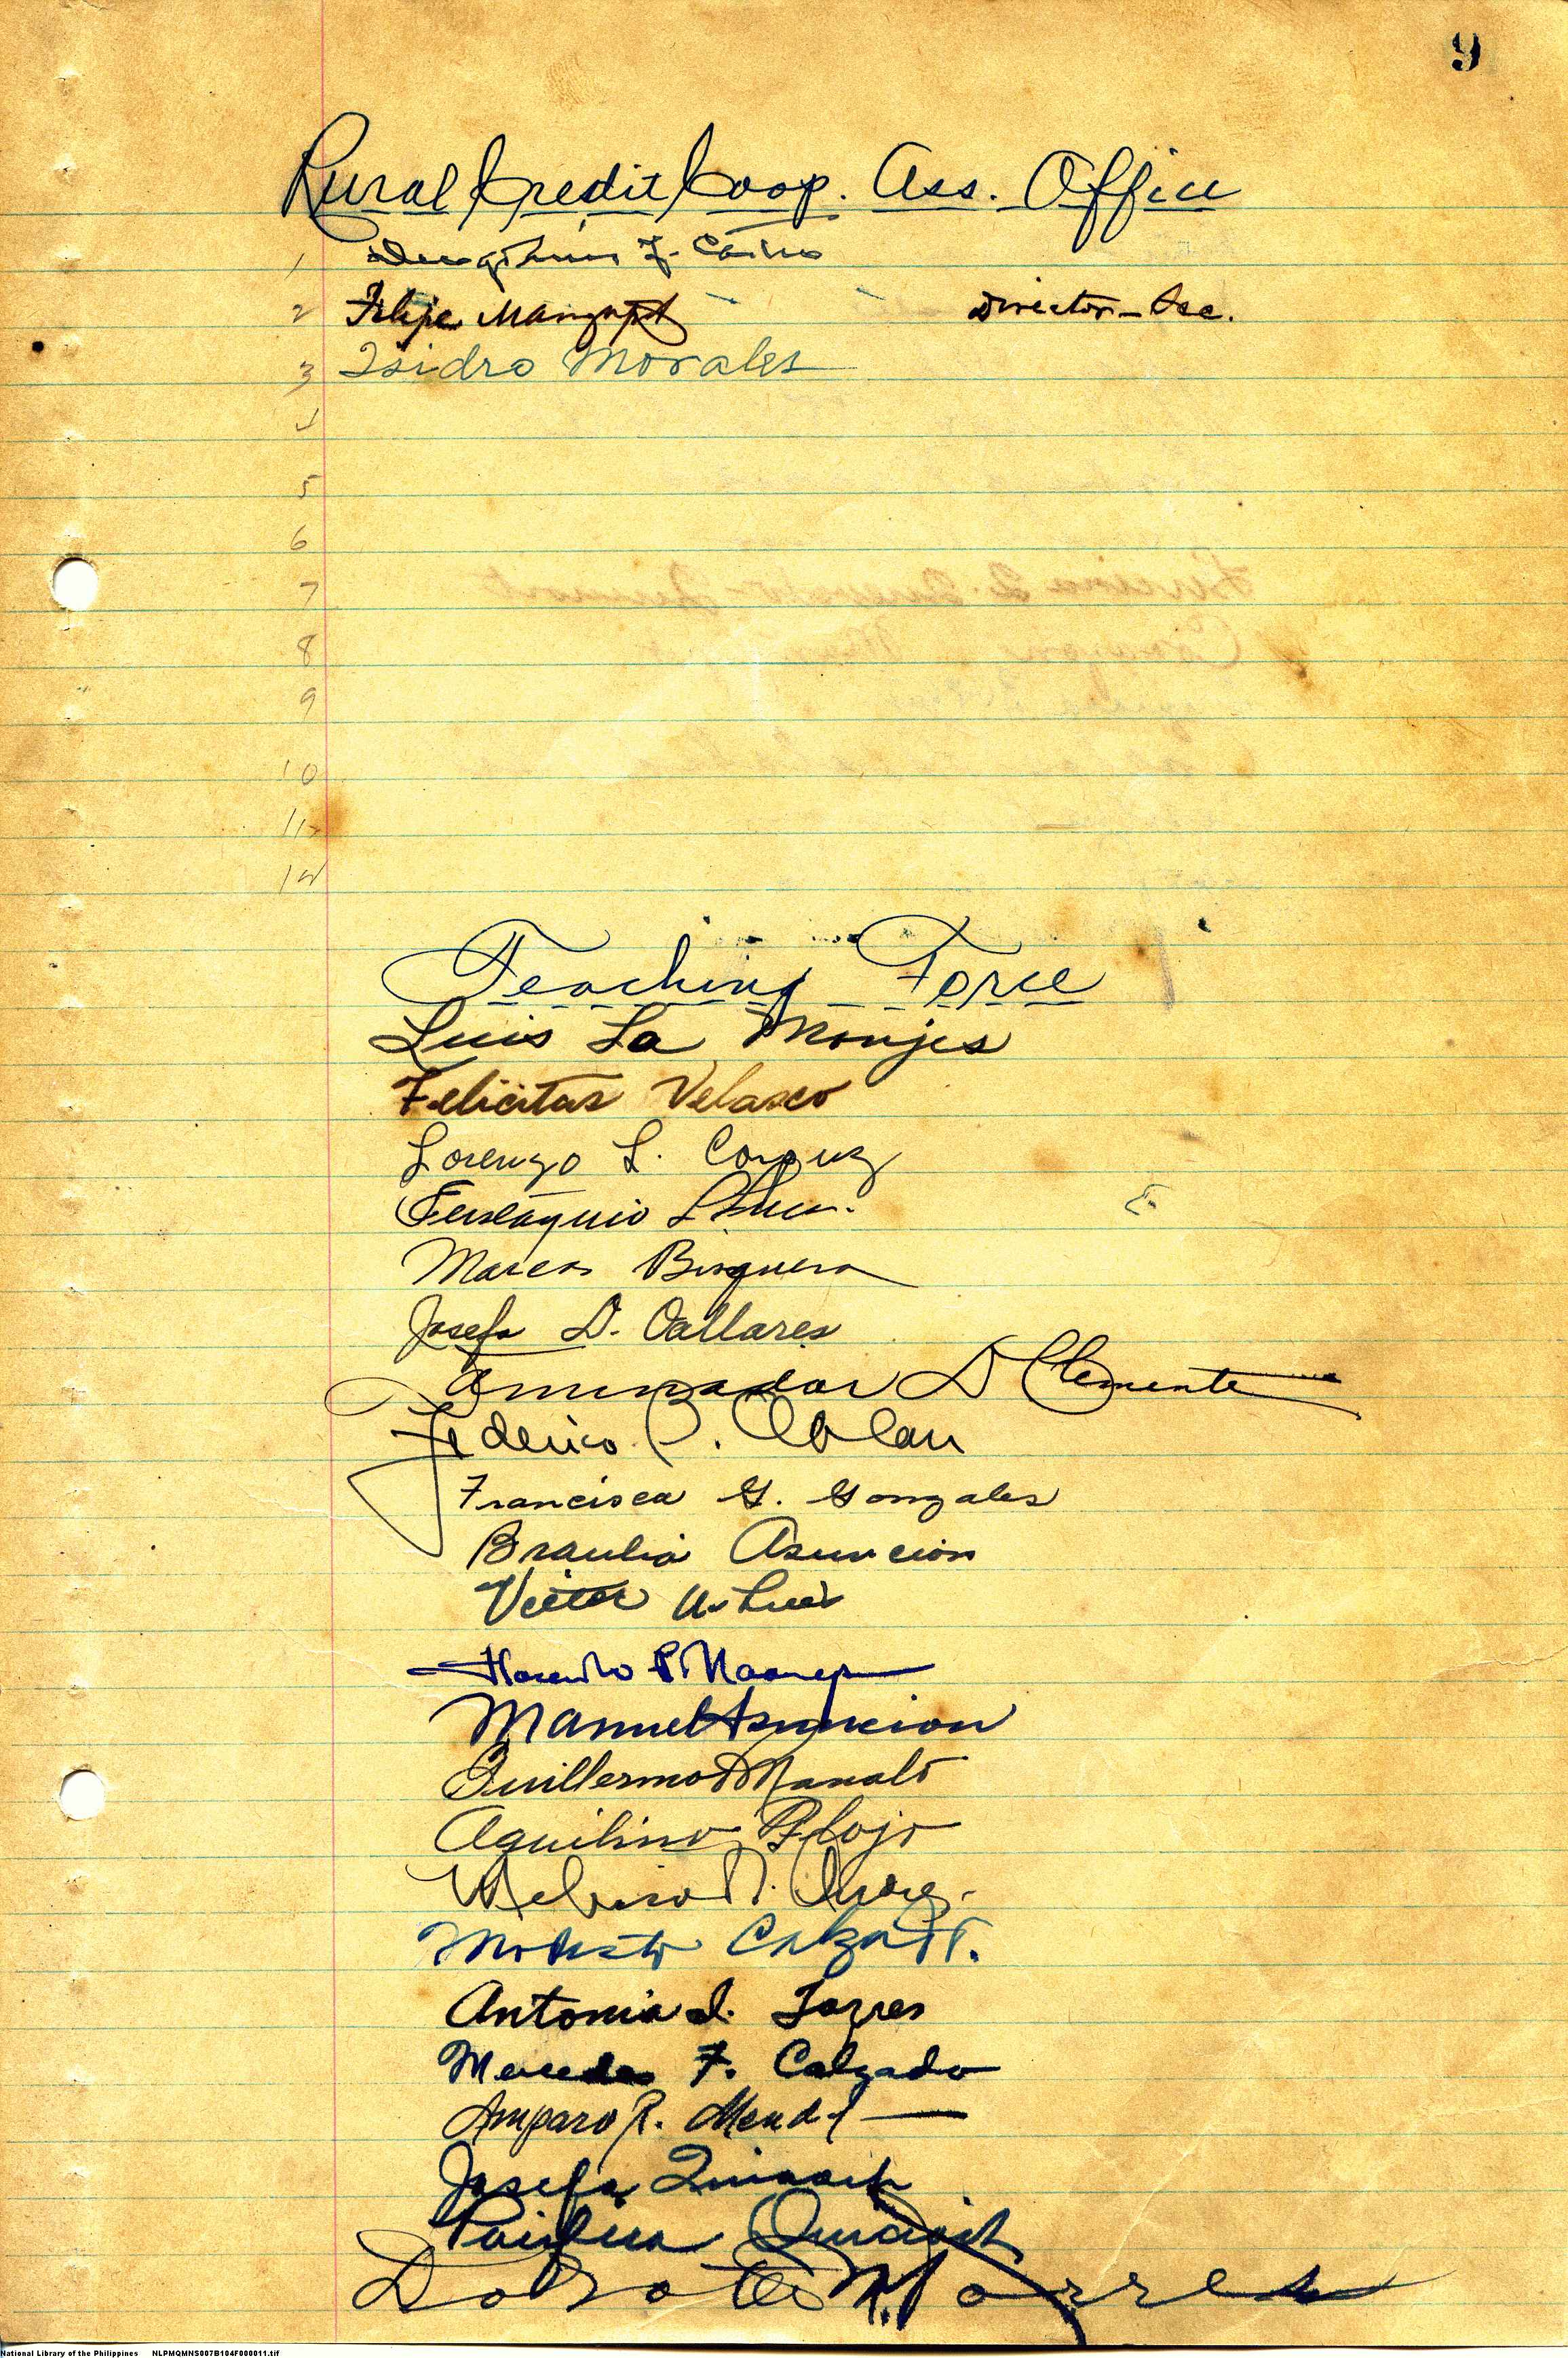 9
Rural Credit Coop. Ass. Office
1
2 Filipe Director-Sec.
3 Isidro Morales
4
5
6
7
8
9
10
11
12
Teaching Force
Luis La Monjes
Felicitas Velasco
Lorenzo L. Corpuz
Eustaquio
Marcos Bisquera
Josefa D. Callares
Aminador D Clemente
Federico P. Ablan
Francisca G. Gonzales
Braulia Asuncion
Victor
Florentino P.
Manuel Asuncion
Guillermo
Aguilino Flojo
Modesto
Antonia I. Torres
Mercedes F. Calzado
Amparo R.
Josefa Quiaoit
Quiaoit
Doroteo N. Torres
National Library of the Philippines NLPMQMNS007B104F000011.tif